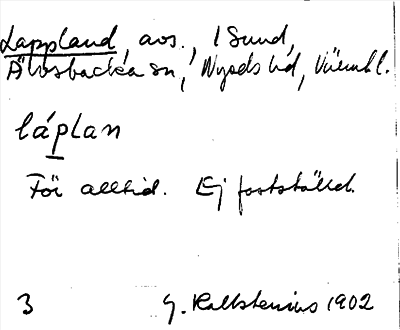 Lappland, avs., i Sund,
Älvsbacka sn, Nyeds hd, Värml.
láplan
För alltid. Ej fastställd.
3 G. Kallstenius 1902